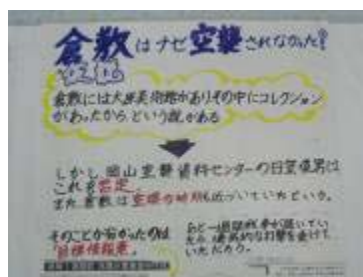 倉敷はナゼ空襲されなかった?
倉敷には大原美術館がありその中にコレクション
があったから、という説がある
しかし、岡山空襲資料センターの日笠俊男は
これを否定。
また倉敷は空爆の時期も近づいていたという。
そのことが分かったのは
"目標情報票"
あと一週間戦争が続いてい
たら、壊滅的な打撃を受けて
いただろう。